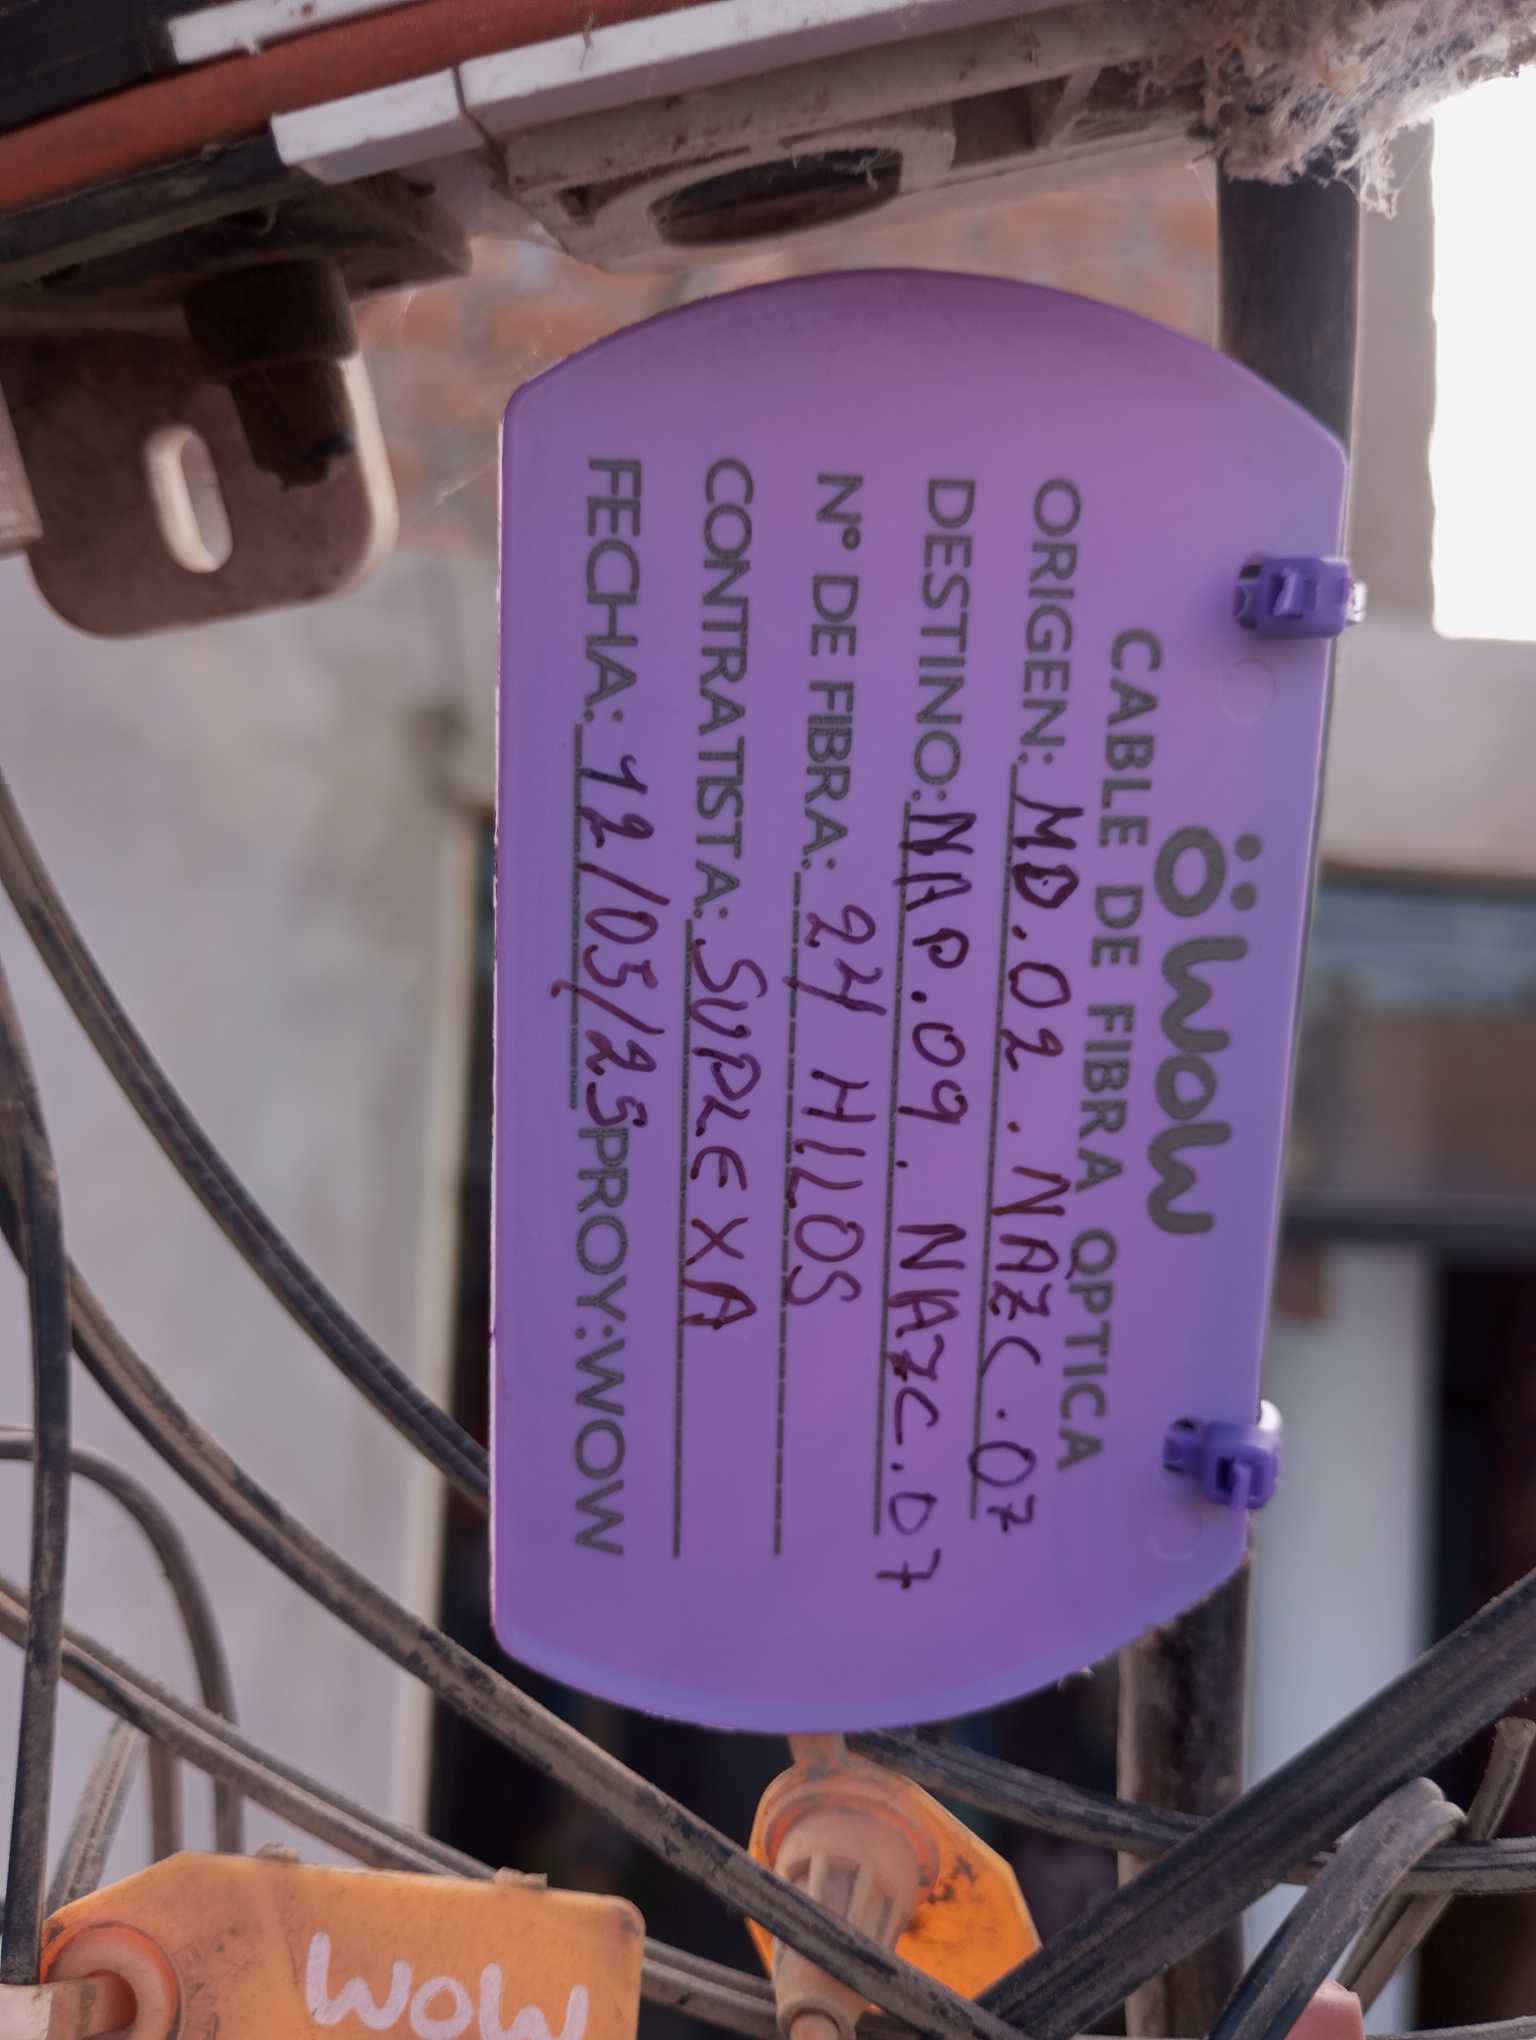 wow
CABLE DE FIBRA OPTICA
ORIGEN: MD.02 . NAZC.07
DESTINO: NAP.09 . NAZC.07
N° DE FIBRA: 24 HILOS
CONTRATISTA: SUPLEXA
FECHA: 12/05/25 PROY:WOW
WOW